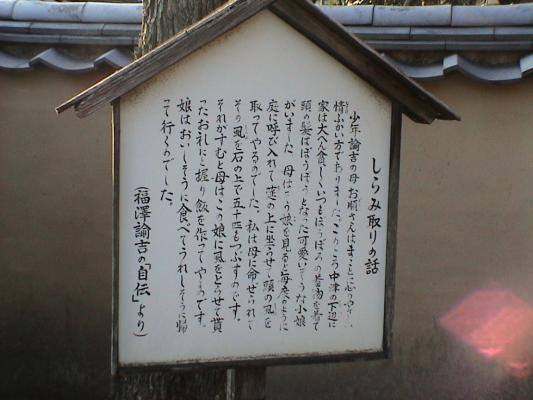 しらみ取りの話
少年諭吉の母お順さんはまことに心のやさしい
情ぶかい方でありました。このころ中津の下辺に
家は大へん貧しくいつもぼろぼろの着物を着て
頭の髪はぼうぼうとなった可愛いそうな小娘
がいました。母はこの娘を見ると毎度のように
庭に呼び入れて莚の上に坐らせて頭の虱を
取ってやるのでした。私は母に命ぜられて
その虱を石の上で五十匹もつぶすのです。
それがすむと母はこの娘に虱をとらせて貰
ったお礼にと握り飯を作ってやるのです。
娘はおいしそうに食べてうれしそうに帰
って行くのでした。
(福澤諭吉の「自伝」より)